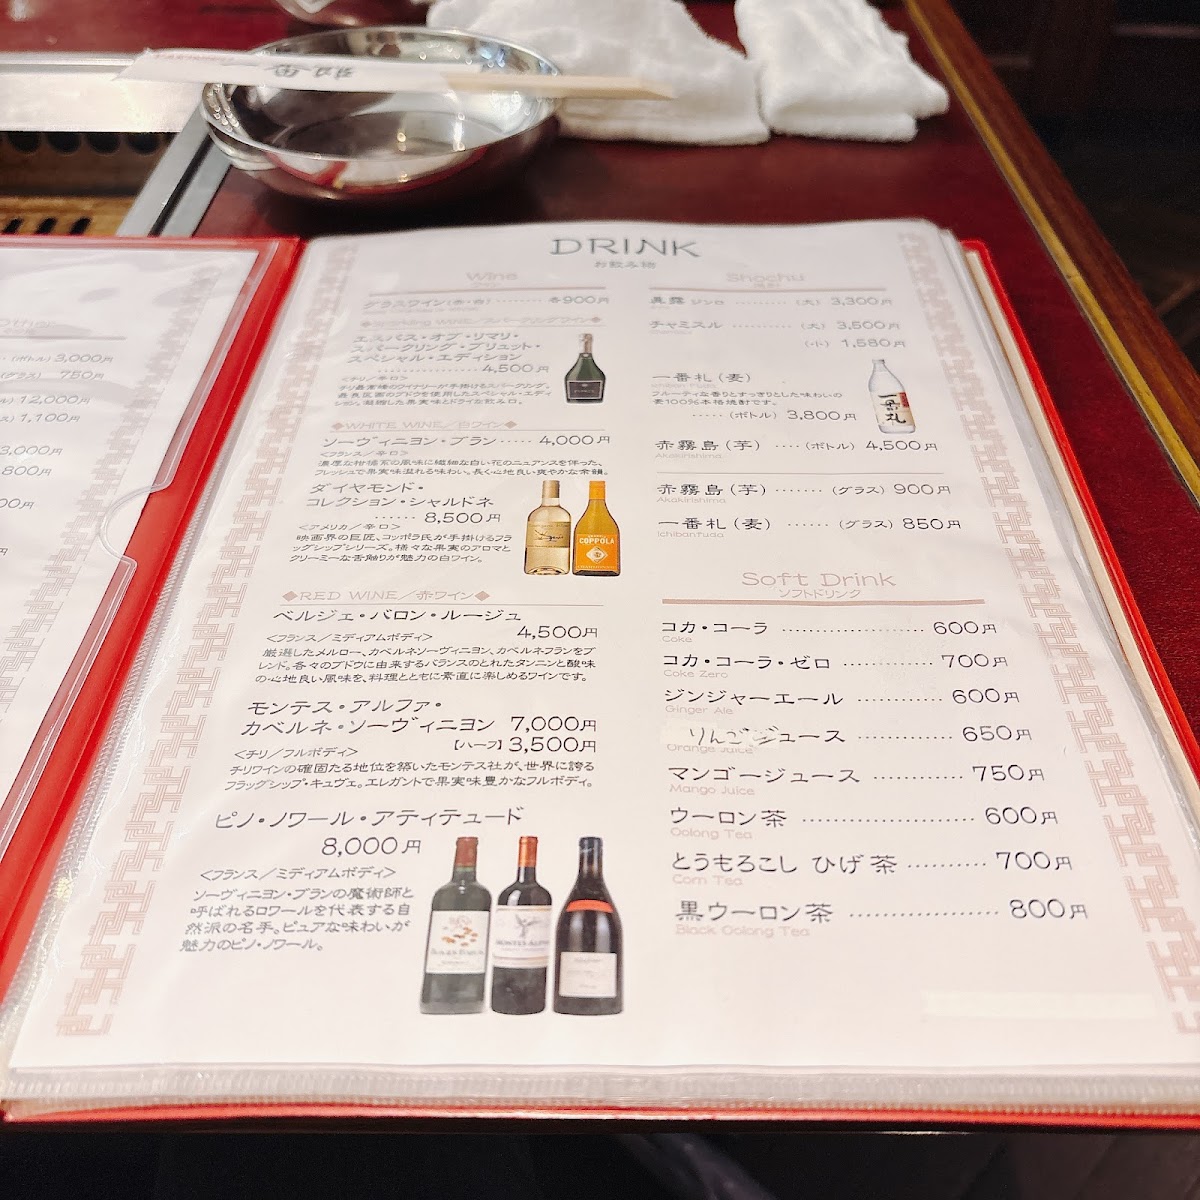 DRINK
お飲み物
Wine
ワイン
グラスワイン(赤・白) ········ 各900円
◆Sparkling WINE/スパークリングワイン◆
エスパス・オブ・リマリ・
スパークリング・ブリュット・
スペシャル・エディション
········ 4,500円
<チリ/辛口>
チリ最南端のワイナリーが手掛けるスパークリング。
最良区画のブドウを使用したスペシャル・エディ
ション。凝縮した果実味とドライな飲み口。
◆WHITE WINE/白ワイン◆
ソーヴィニヨン・ブラン ····· 4,000円
<フランス/辛口>
濃厚な柑橘系の風味に繊細な白い花のニュアンスを伴った、
フレッシュで果実味溢れる味わい。長く心地良い爽やかな余韻。
ダイヤモンド・
コレクション・シャルドネ
······ 8,500円
<アメリカ/辛口>
映画界の巨匠、コッポラ氏が手掛けるフラ
ッグシップシリーズ。様々な果実のアロマと
クリーミーな舌触りが魅力の白ワイン。
COPPOLA
◆RED WINE/赤ワイン◆
ベルジェ・バロン・ルージュ
4,500円
<フランス/ミディアムボディ>
厳選したメルロー、カベルネソーヴィニヨン、カベルネフランをブ
レンド。各々のブドウに由来するバランスのとれたタンニンと酸味
の心地良い風味を、料理とともに素直に楽しめるワインです。
モンテス・アルファ・
カベルネ・ソーヴィニヨン 7,000円
【ハーフ】3,500円
<チリ/フルボディ>
チリワインの確固たる地位を築いたモンテス社が、世界に誇る
フラッグシップ・キュヴェ。エレガントで果実味豊かなフルボディ。
ピノ・ノワール・アティテュード
8,000円
<フランス/ミディアムボディ>
ソーヴィニヨン・ブランの魔術師と
呼ばれるロワールを代表する自
然派の名手。ピュアな味わいが
魅力のピノ・ノワール。
MONTES ALPHA
Shochu
焼酎
眞露 ジンロ ············ (大) 3,300円
チャミスル ············ (大) 3,500円
(小) 1,580円
一番札(麦)
Ichiban Fuda
フルーティな香りとすっきりとした味わいの
麦100%本格焼酎です。
····· (ボトル) 3,800円
一番札
赤霧島(芋) ···· (ボトル) 4,500円
Akakirishima
赤霧島(芋) ······· (グラス) 900円
Akakirishima
一番札(麦) ······ (グラス) 850円
IchibanFuda
Soft Drink
ソフトドリンク
コカ・コーラ ···················· 600円
Coke
コカ・コーラ・ゼロ ············ 700円
Coke Zero
ジンジャーエール ············ 600円
Ginger Ale
りんごジュース ············ 650円
Orange Juice
マンゴージュース ············ 750円
Mango Juice
ウーロン茶 ······················ 600円
Oolong Tea
とうもろこし ひげ茶 ·········· 700円
Corn Tea
黒ウーロン茶 ··················· 800円
Black Oolong Tea
Other
(ボトル) 3,000円
(グラス) 750円
12,000円
1,100円
3,000円
800円